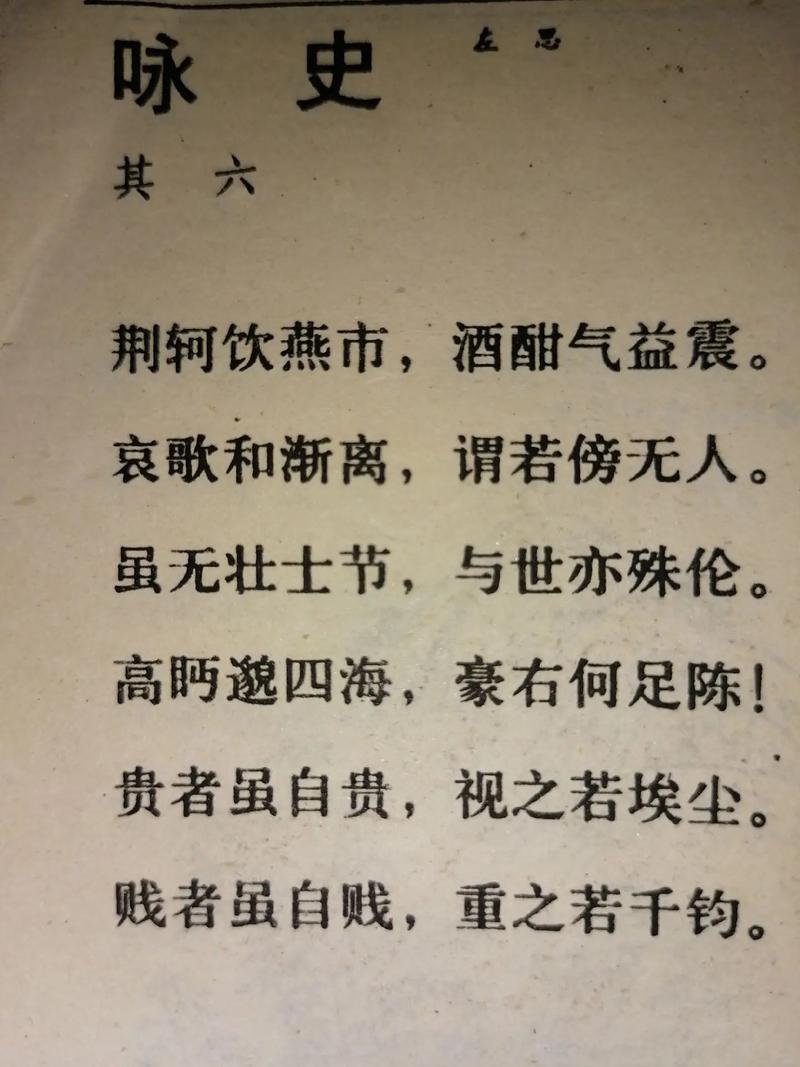 咏史 左思
其六
荆轲饮燕市，酒酣气益震。
哀歌和渐离，谓若傍无人。
虽无壮士节，与世亦殊伦。
高眄邈四海，豪右何足陈！
贵者虽自贵，视之若埃尘。
贱者虽自贱，重之若千钧。